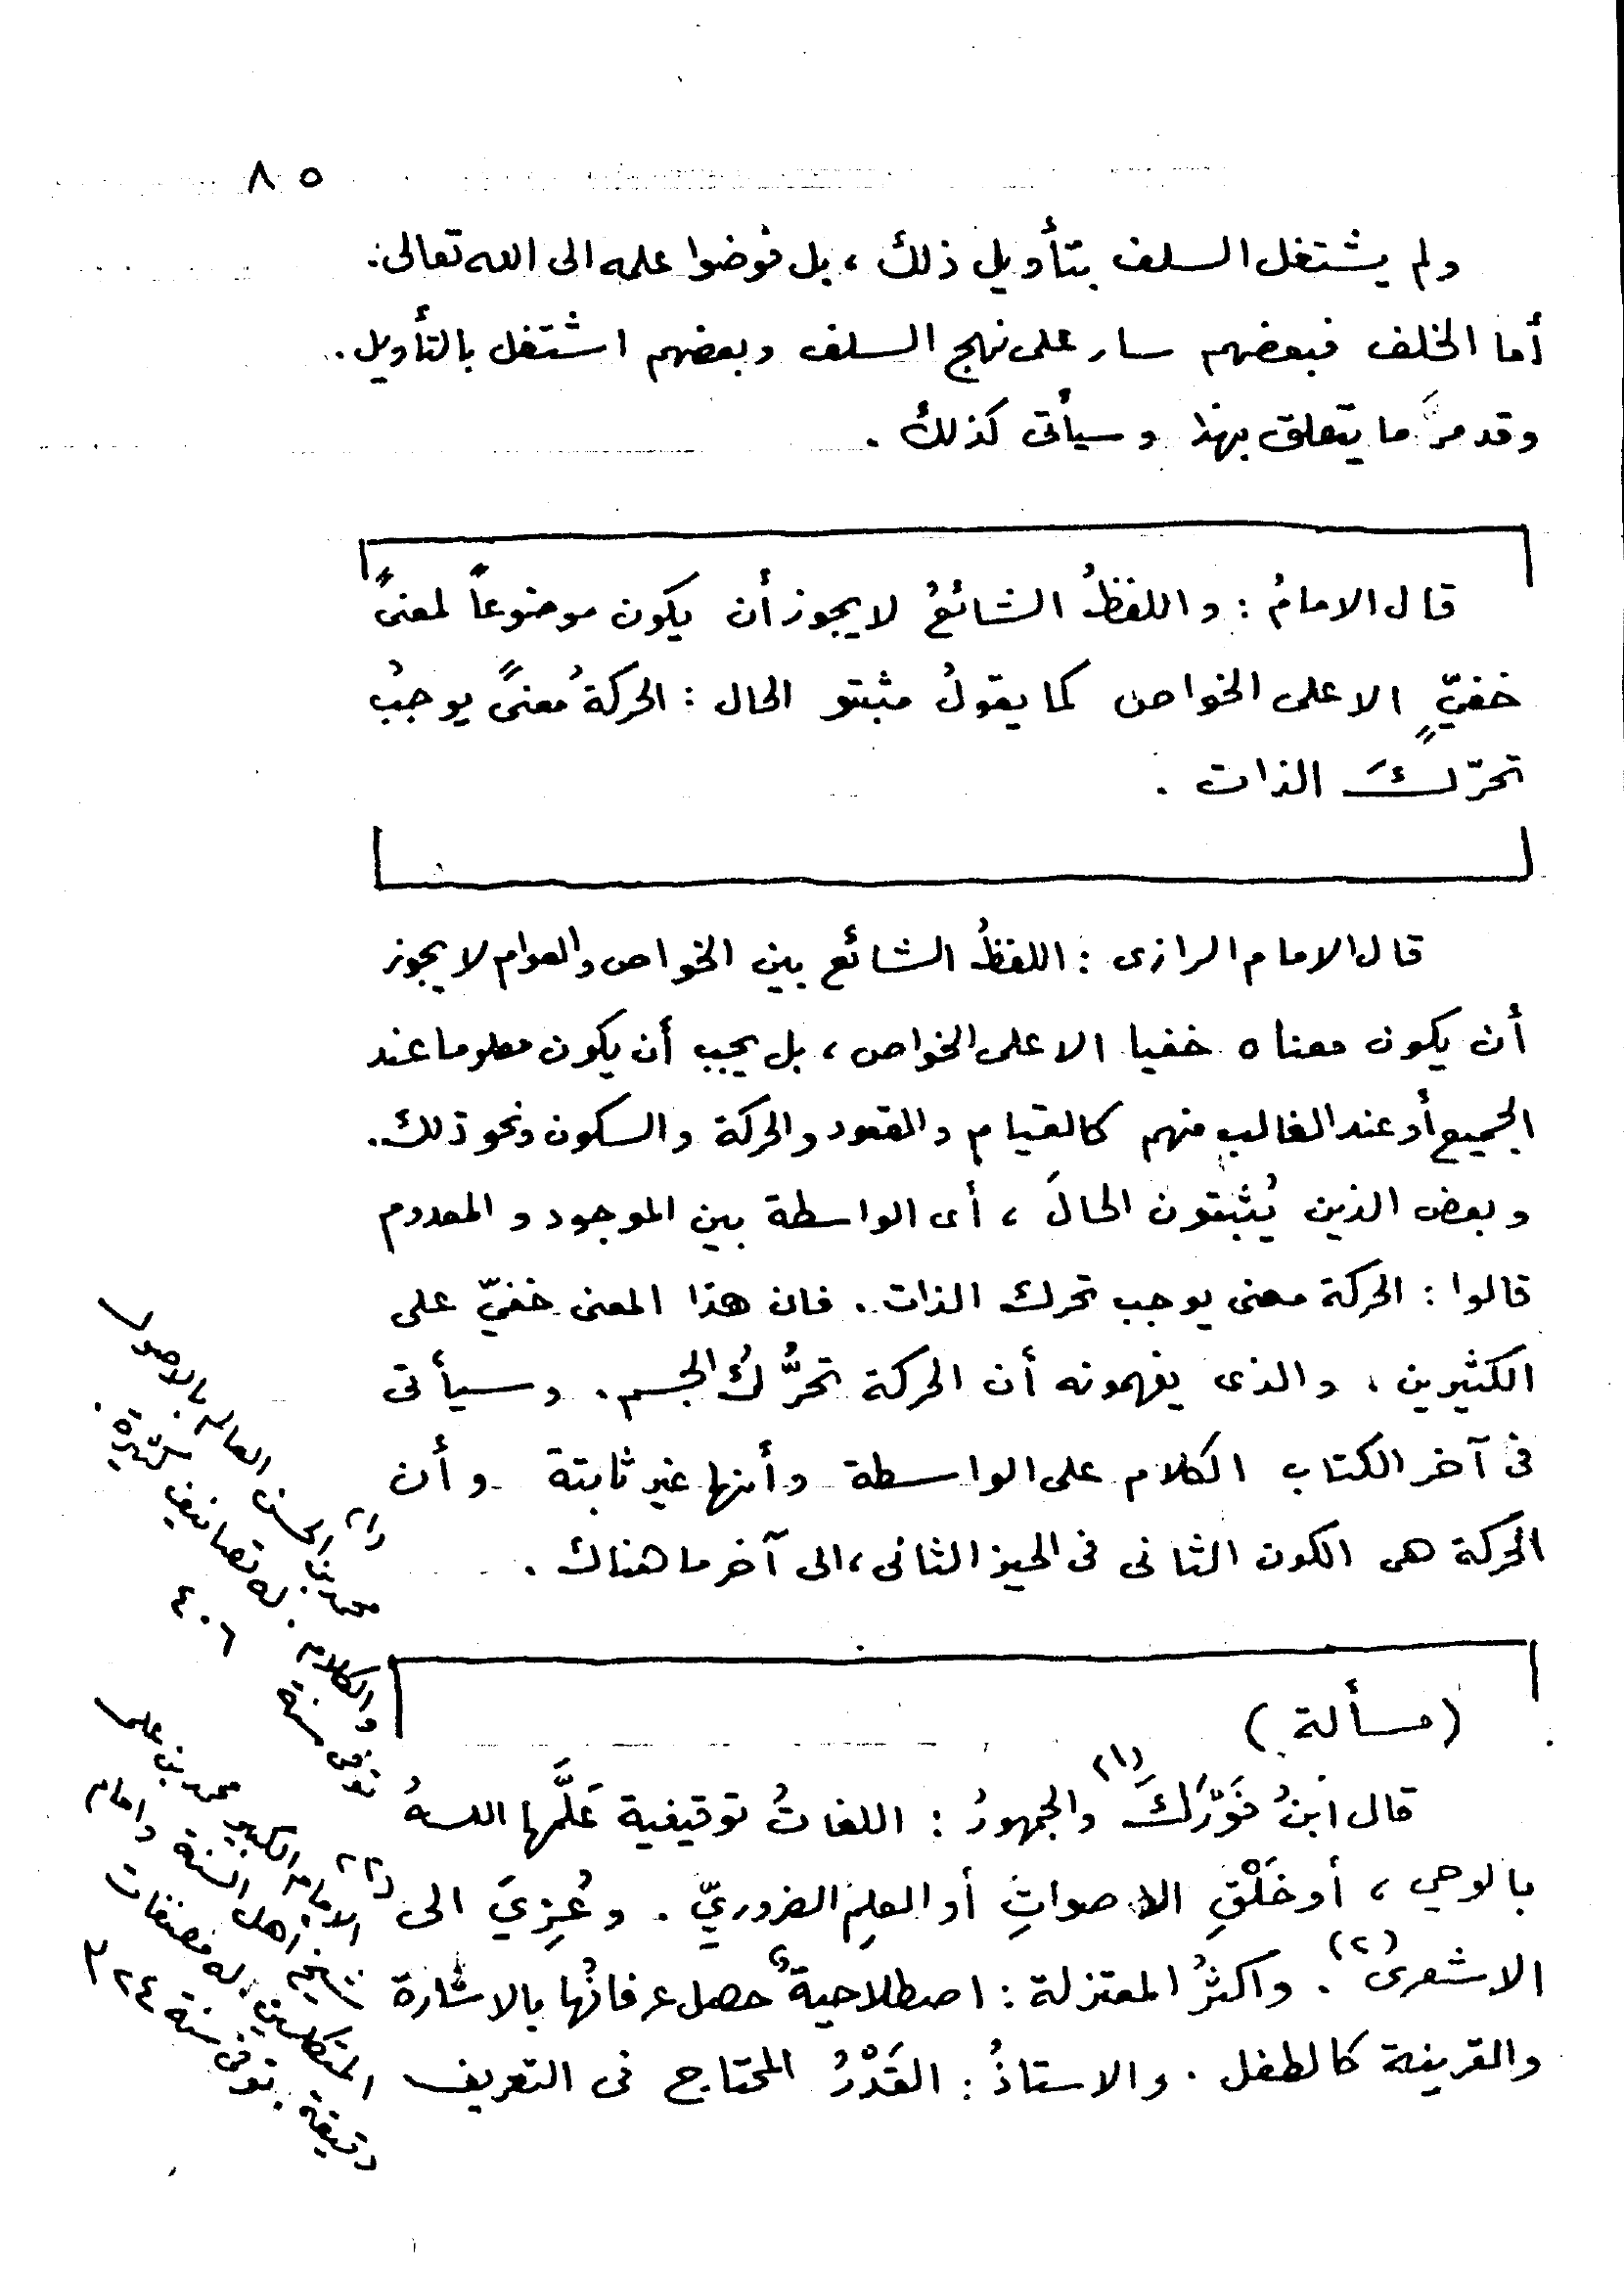 ٨٥
ولم يشتغل السلف بتأويل ذلك ، بل فوضوا علمه الى الله تعالى .
أما الخلف فبعضهم سار على نهج السلف وبعضهم اشتغل بالتأويل .
وقد مرَّ ما يتعلق بهذا وسيأتى كذلك .
قال الامامُ : واللفظُ الشائعُ لا يجوز أن يكون موضوعاً لمعنىً
خفيٍّ الا على الخواص كما يقولُ مثبتو الحال : الحركةُ معنىً يوجبُ
تحرّكَ الذات .
قال الامام الرازى : اللفظُ الشائع بين الخواص والعوام لا يجوز
أن يكون معناه خفيا الا على الخواص ، بل يجب أن يكون معلوما عند
الجميع أو عند الغالب منهم كالقيام والقعود والحركة والسكون ونحو ذلك .
وبعض الذين يُثبتون الحالَ ، أى الواسطة بين الموجود والمعدوم
قالوا : الحركة معنى يوجب تحرك الذات . فان هذا المعنى خفيّ على
الكثيرين ، والذى يفهمونه أن الحركة تحرُّكُ الجسم . وسيأتى
فى آخر الكتاب الكلام على الواسطة وأنها غير ثابتة وأن
الحركة هى الكون الثانى فى الحيز الثانى ، الى آخر ما هناك .
( مسألة )
قال ابنُ فَوْرَكَ (١) والجمهورُ : اللغاتُ توقيفية عَلَّمها اللهُ
بالوحي ، أو خَلْقِ الاصواتِ أو العلِم الضروريّ . وعُزِيَ الى
الاشعرى (٢) . واكثرُ المعتزلة : اصطلاحيةٌ حصل عرفانُها بالاشارة
والقرينة كالطفل . والاستاذُ : القَدْرُ المحتاج فى التعريف
(١) محمد بن الحسن العالم بالاصول
والكلام . له تصانيف كثيرة .
توفى سنة ٤٠٦
(٢) الامام الكبير محمد بن على
شيخ اهل السنة وامام
المتكلمين . له مصنفات
دقيقة . توفى سنة ٣٢٤